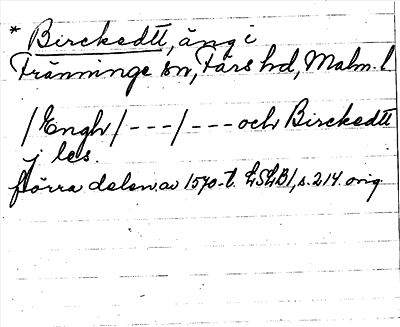 * Birckedtt, äng i
Tränninge sn, Färs hd, Malm. l
/Engh/ - - - / - - - och Birckedtt
j les.
förra delen av 1570-t. LSLB1, s. 214. orig